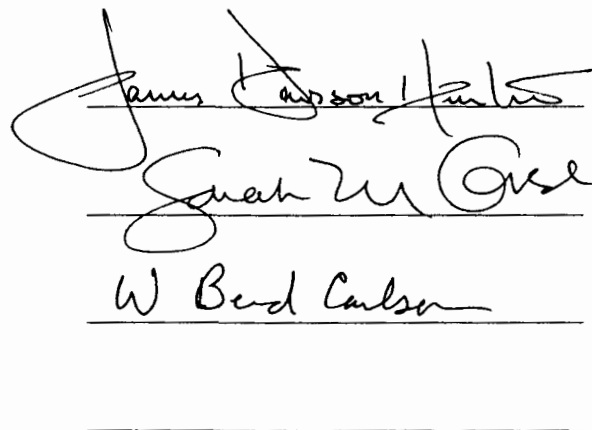 James Dawson Hunter
Sarah M Corse
W Bernard Carlson